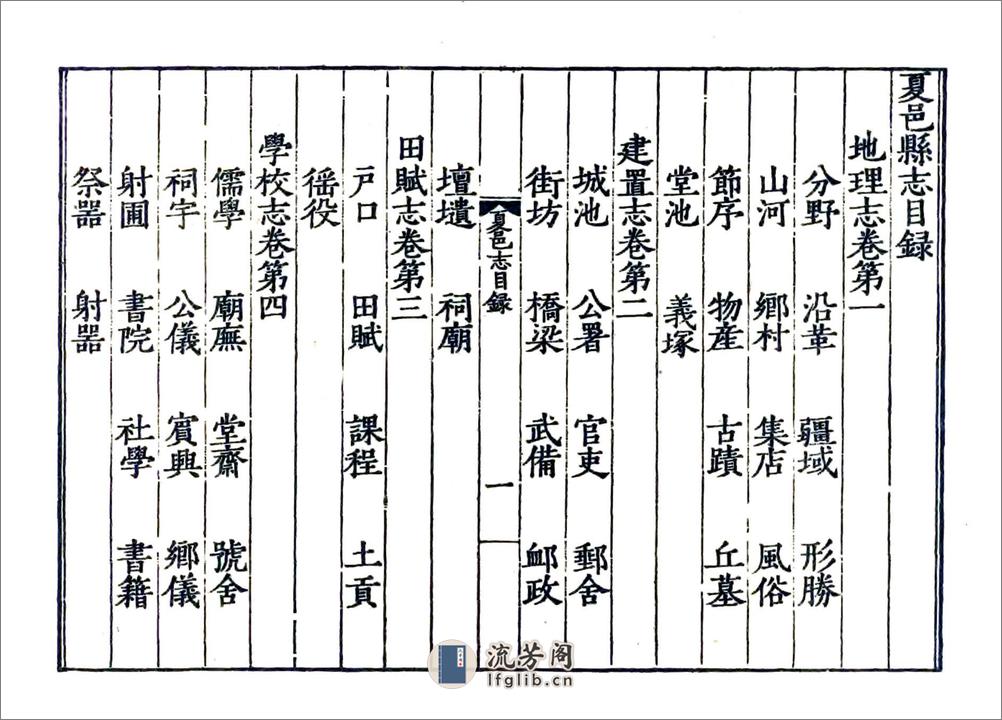 夏邑縣志目録
地理志卷第一
分野 沿革 疆域 形勝
山河 鄉村 集店 風俗
節序 物産 古蹟 丘墓
堂池 義塚
建置志卷第二
城池 公署 官吏 郵舍
街坊 橋梁 武備 衈政
壇壝 祠廟
夏邑志目録 一
田賦志卷第三
戸口 田賦 課程 土貢
徭役
學校志卷第四
儒學 廟廡 堂齋 號舍
祠宇 公儀 賓興 鄉儀
射圃 書院 社學 書籍
祭器 射器
流芳阁
lfglib.cn